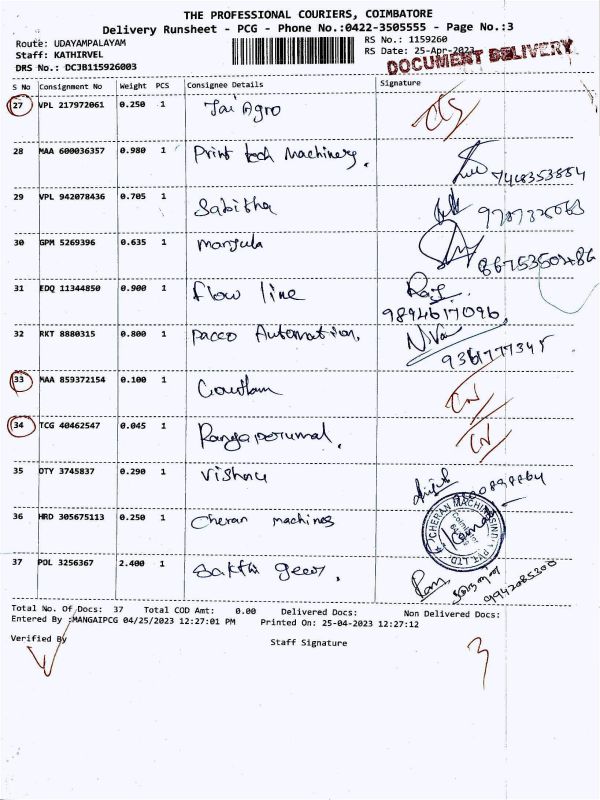 THE PROFESSIONAL COURIERS, COIMBATORE
Delivery Runsheet - PCG - Phone No.:0422-3505555 - Page No.:3
Route: UDAYAMPALAYAM
RS No.: 1159260
Staff: KATHIRVEL
RS Date: 25-Apr-2023
DRS No.: DCJB115926003
DOCUMENT DELIVERY
S No Consignment No Weight PCS Consignee Details Signature
27 VPL 217972061 0.250 1 Jai Agro
28 MAA 600036357 0.980 1 Print tech Machinery. 7448353884
29 VPL 942078436 0.705 1 Sabitha
30 GPM 5269396 0.635 1 Manjula
31 EDQ 11344850 0.900 1 Flow line Raj
9894617096
32 RKT 8880315 0.800 1 Pacco Automation. Niva
9361777345
33 MAA 859372154 0.100 1 Goutham
34 TCG 40462547 0.045 1 Rangaperumal.
35 OTY 3745837 0.290 1 Vishnu
36 HRD 305675113 0.250 1 Cheran machines
CHERAN MACHINES INDIA PVT. LTD.
37 POL 3256367 2.400 1 Sakthi gears. Ram
9942085300
Total No. Of Docs: 37 Total COD Amt: 0.00 Delivered Docs: Non Delivered Docs:
Entered By :MANGAIPCG 04/25/2023 12:27:01 PM Printed On: 25-04-2023 12:27:12
Verified By
Staff Signature
3